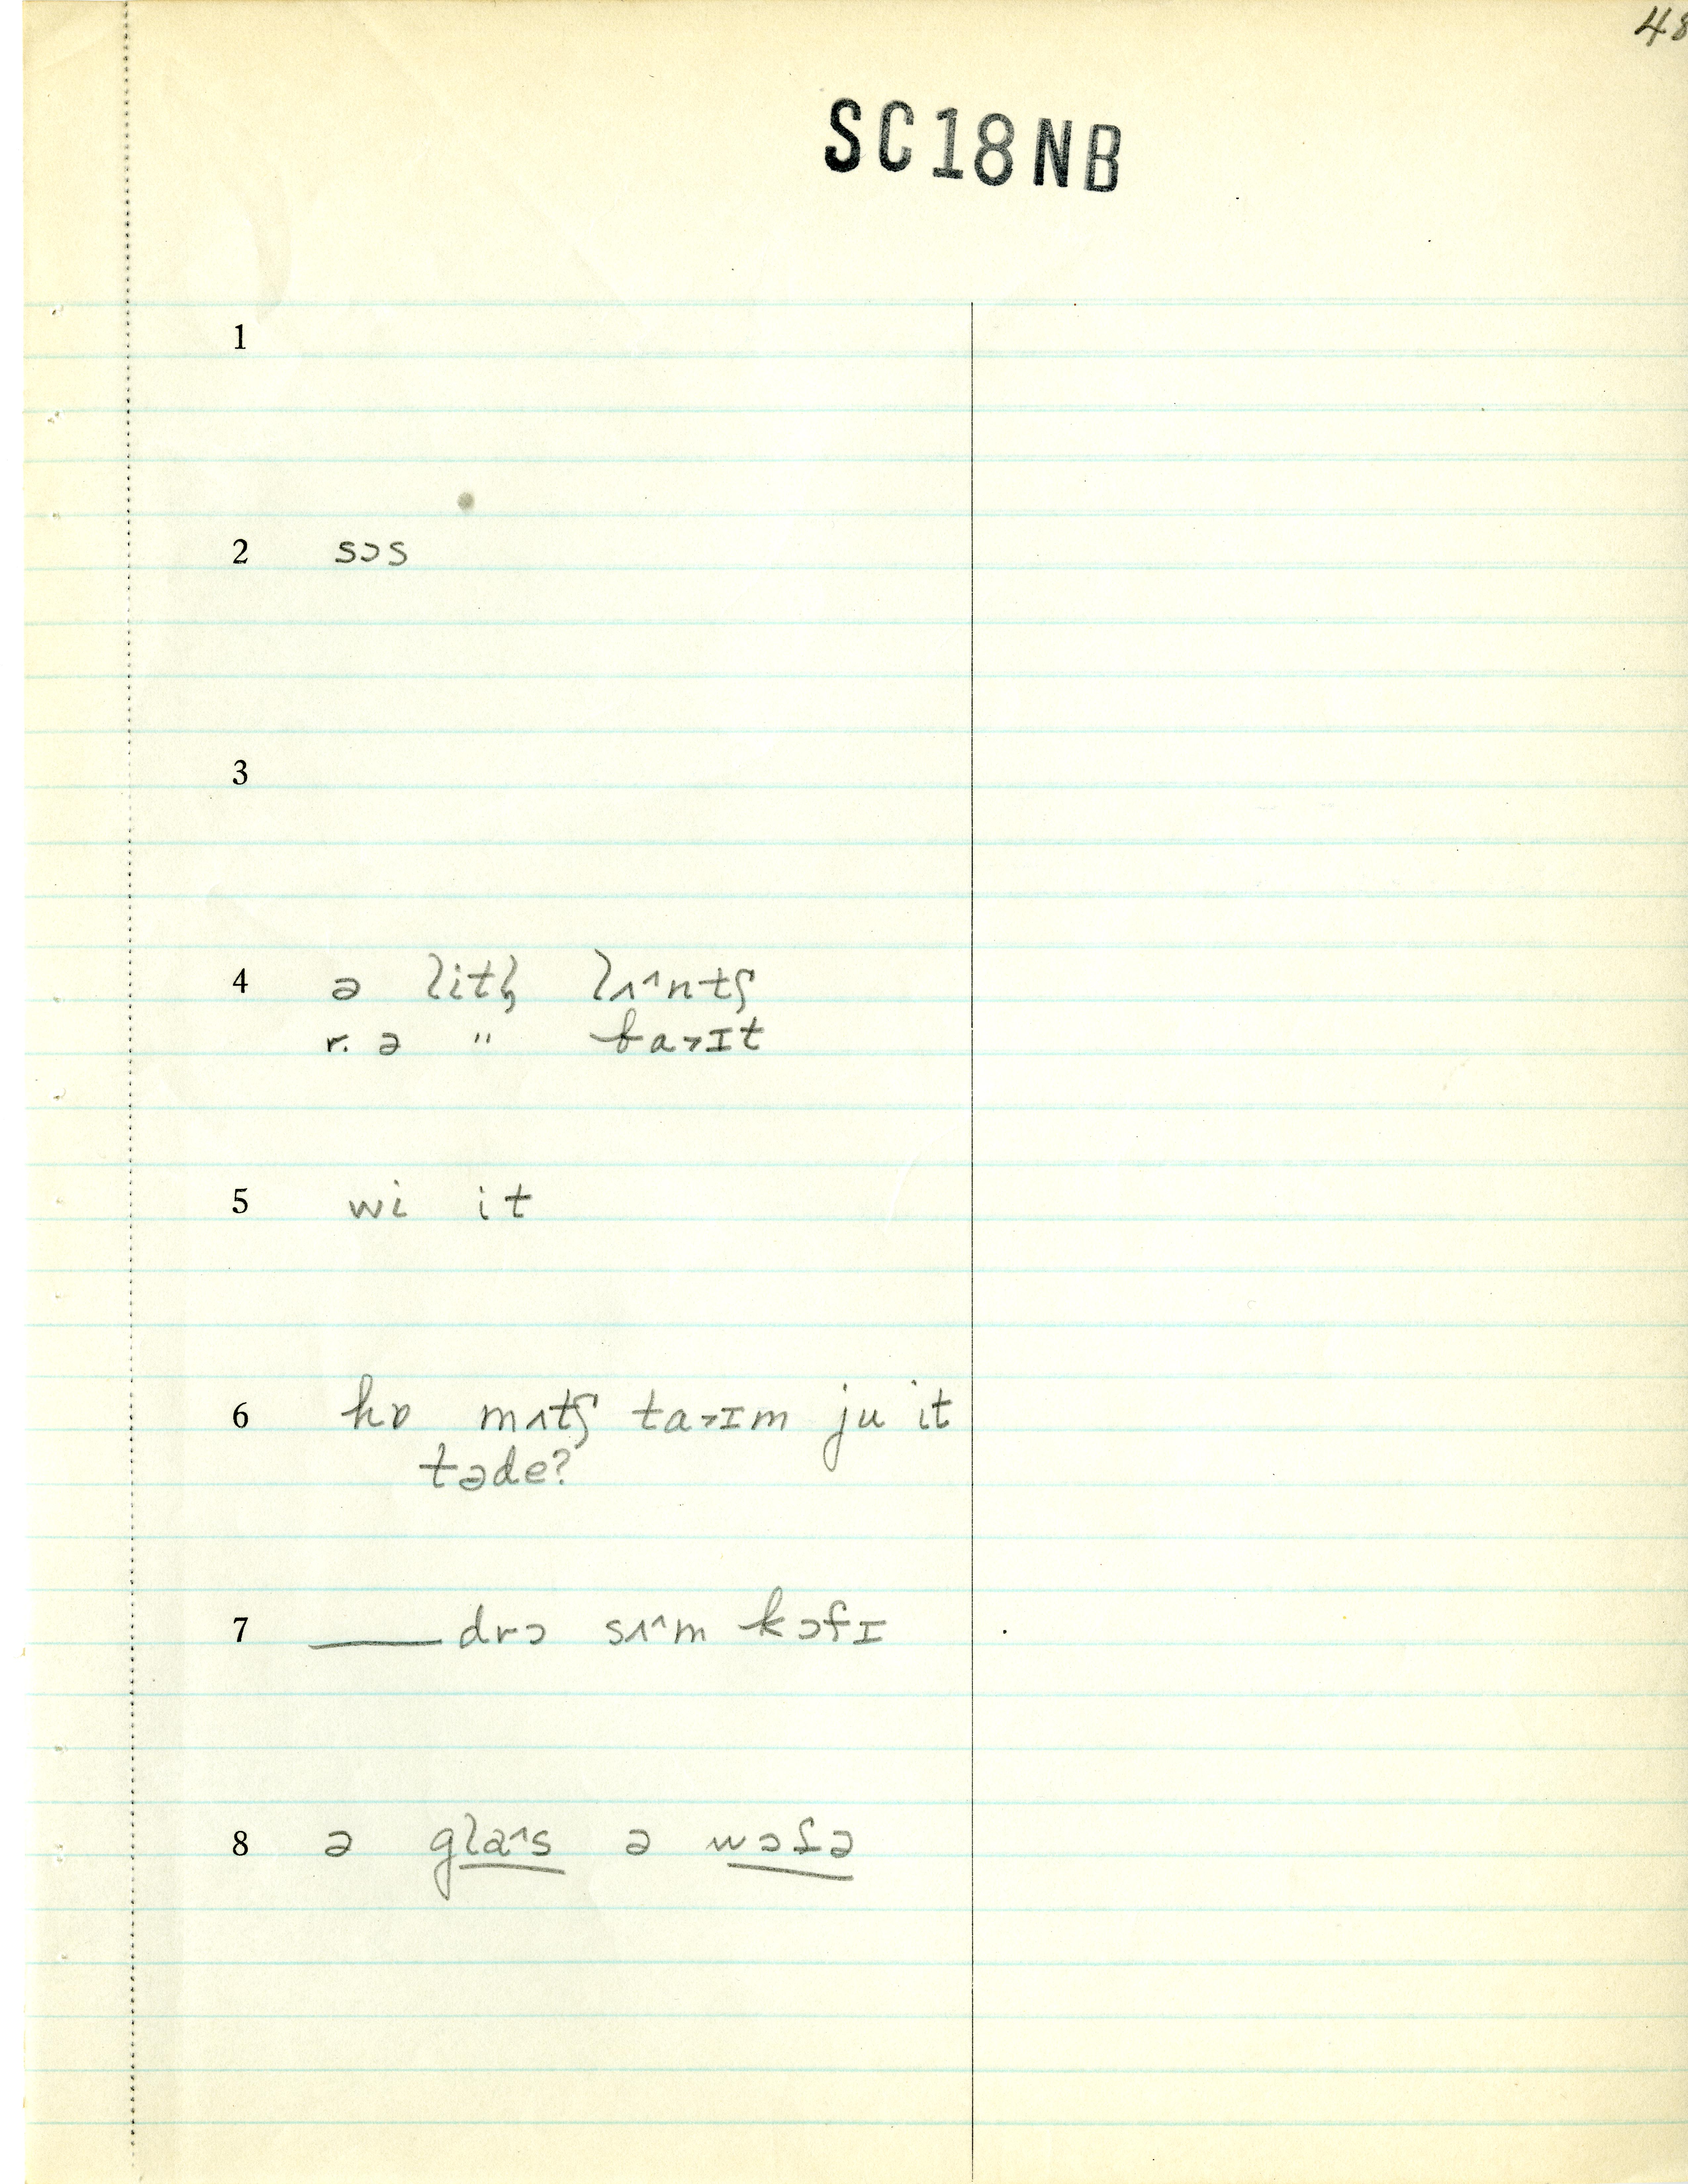 48
SC18NB
1
2 sɔs
3
4 ə litl̩ lʌ^ntʃ
r. ə " ba˃ɪt
5 wi it
6 hɒ mʌtʃ ta˃ɪm ju it
təde?
7 ____drɔ sʌ^m kɔfɪ
8 ə gla^s ə wɔtə